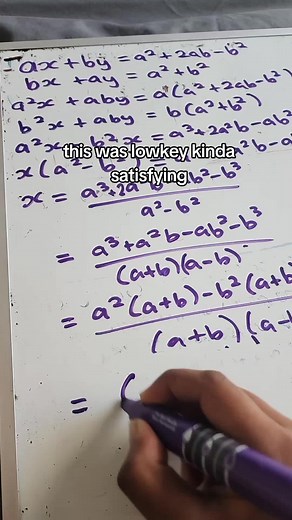 ax + by = a² + 2ab - b²
bx + ay = a² + b²
a²x + aby = a(a² + 2ab - b²)
b²x + aby = b(a² + b²)
a²x b²x = a³ + 2a²b - ab²
this was lowkey kinda
x(a² a²b - ab
satisfying
x = a³ + 2a b² - b³
a² - b²
= a³ + a²b - ab² - b³
(a+b)(a-b)
= a²(a+b) - b²(a+b
(a+b)(a-b
= (